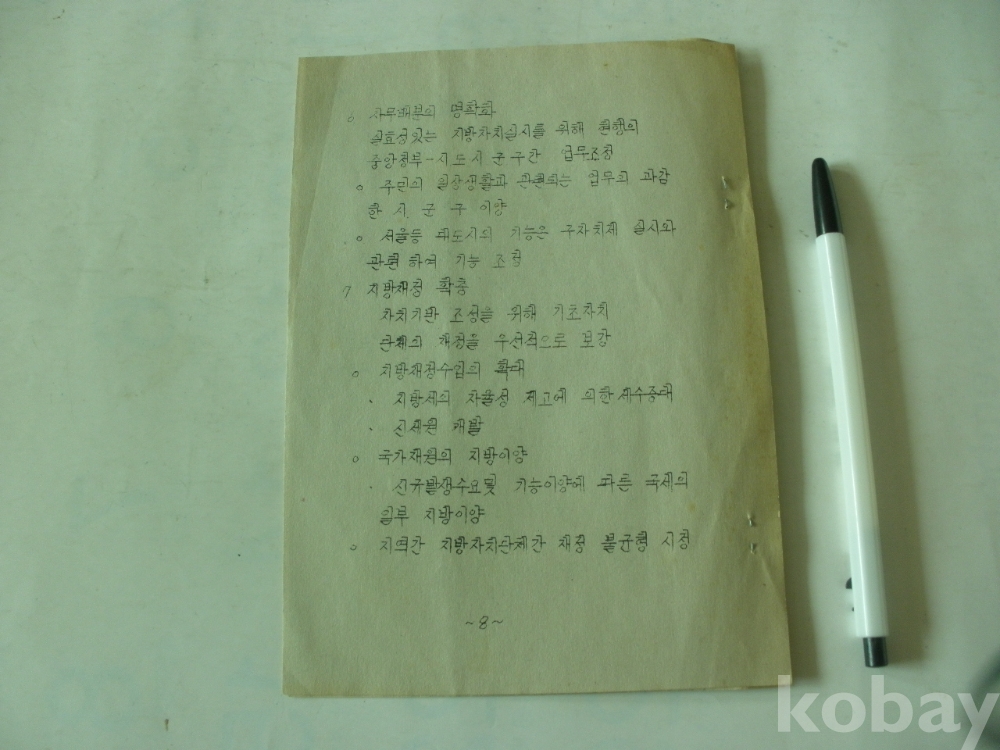 o 사무배분의 명확화
실효성있는 지방자치실시를 위해 현행의
중앙정부-시도시군구간 업무조정
o 주민의 일상생활과 관련되는 업무의 과감
한 시.군 구 이양
o 서울등 대도시의 기능은 구자치제 실시와
관련하여 기능 조정
7 지방재정 확충
자치기반 조성을 위해 기초자치
단체의 재정을 우선적으로 보강
o 지방재정수입의 확대
· 지방세의 자율성 제고에 의한 세수증대
· 신세원 개발
o 국가재원의 지방이양
· 신규발생수요및 기능이양에 따른 국세의
일부 지방이양
o 지역간 지방자치단체간 재정 불균형 시정
~8~
kobay